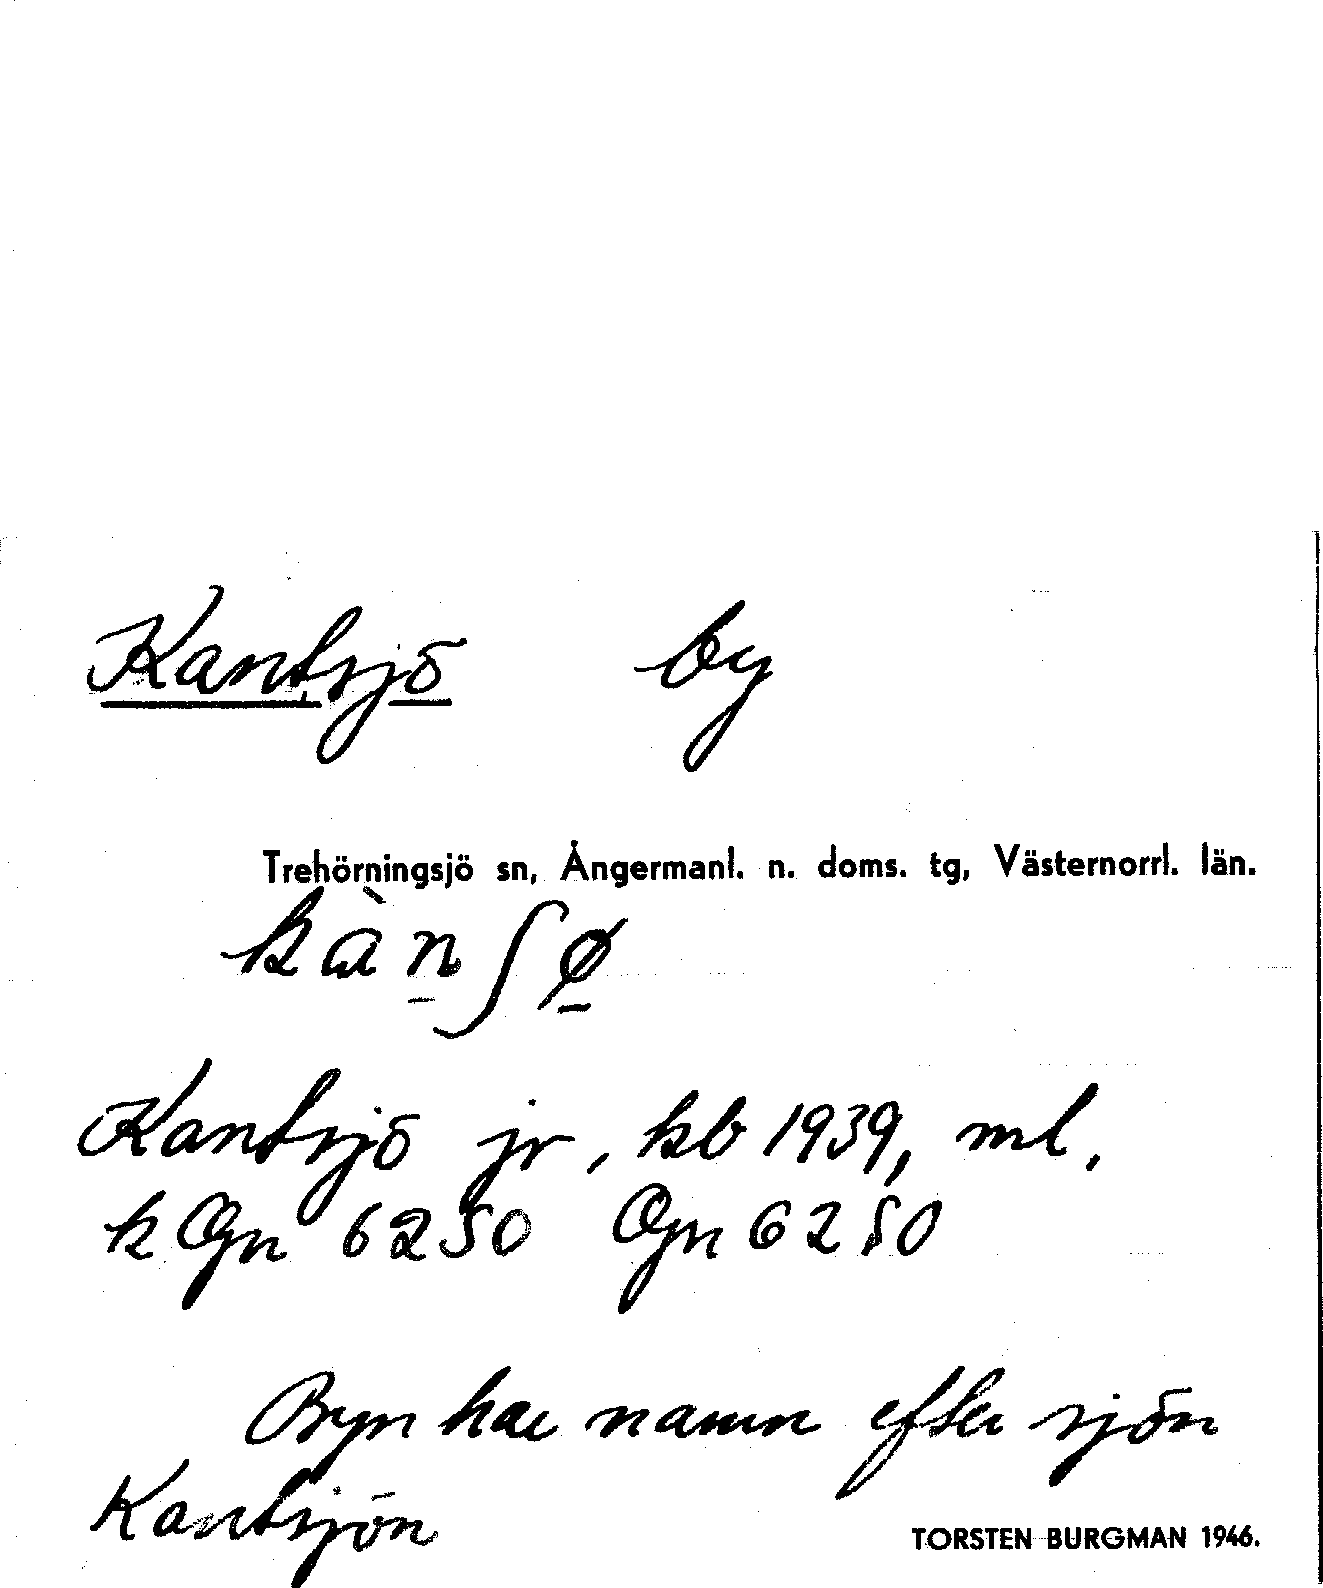 Kantsjö by
Trehörningsjö sn, Ångermanl. n. doms. tg, Västernorrl. län.
kànʃø
Kantsjö jr, kb 1939, ml,
k Ögn 6250 Ögn 6250
Byn har namn efter sjön
Kantsjön
TORSTEN BURGMAN 1946.